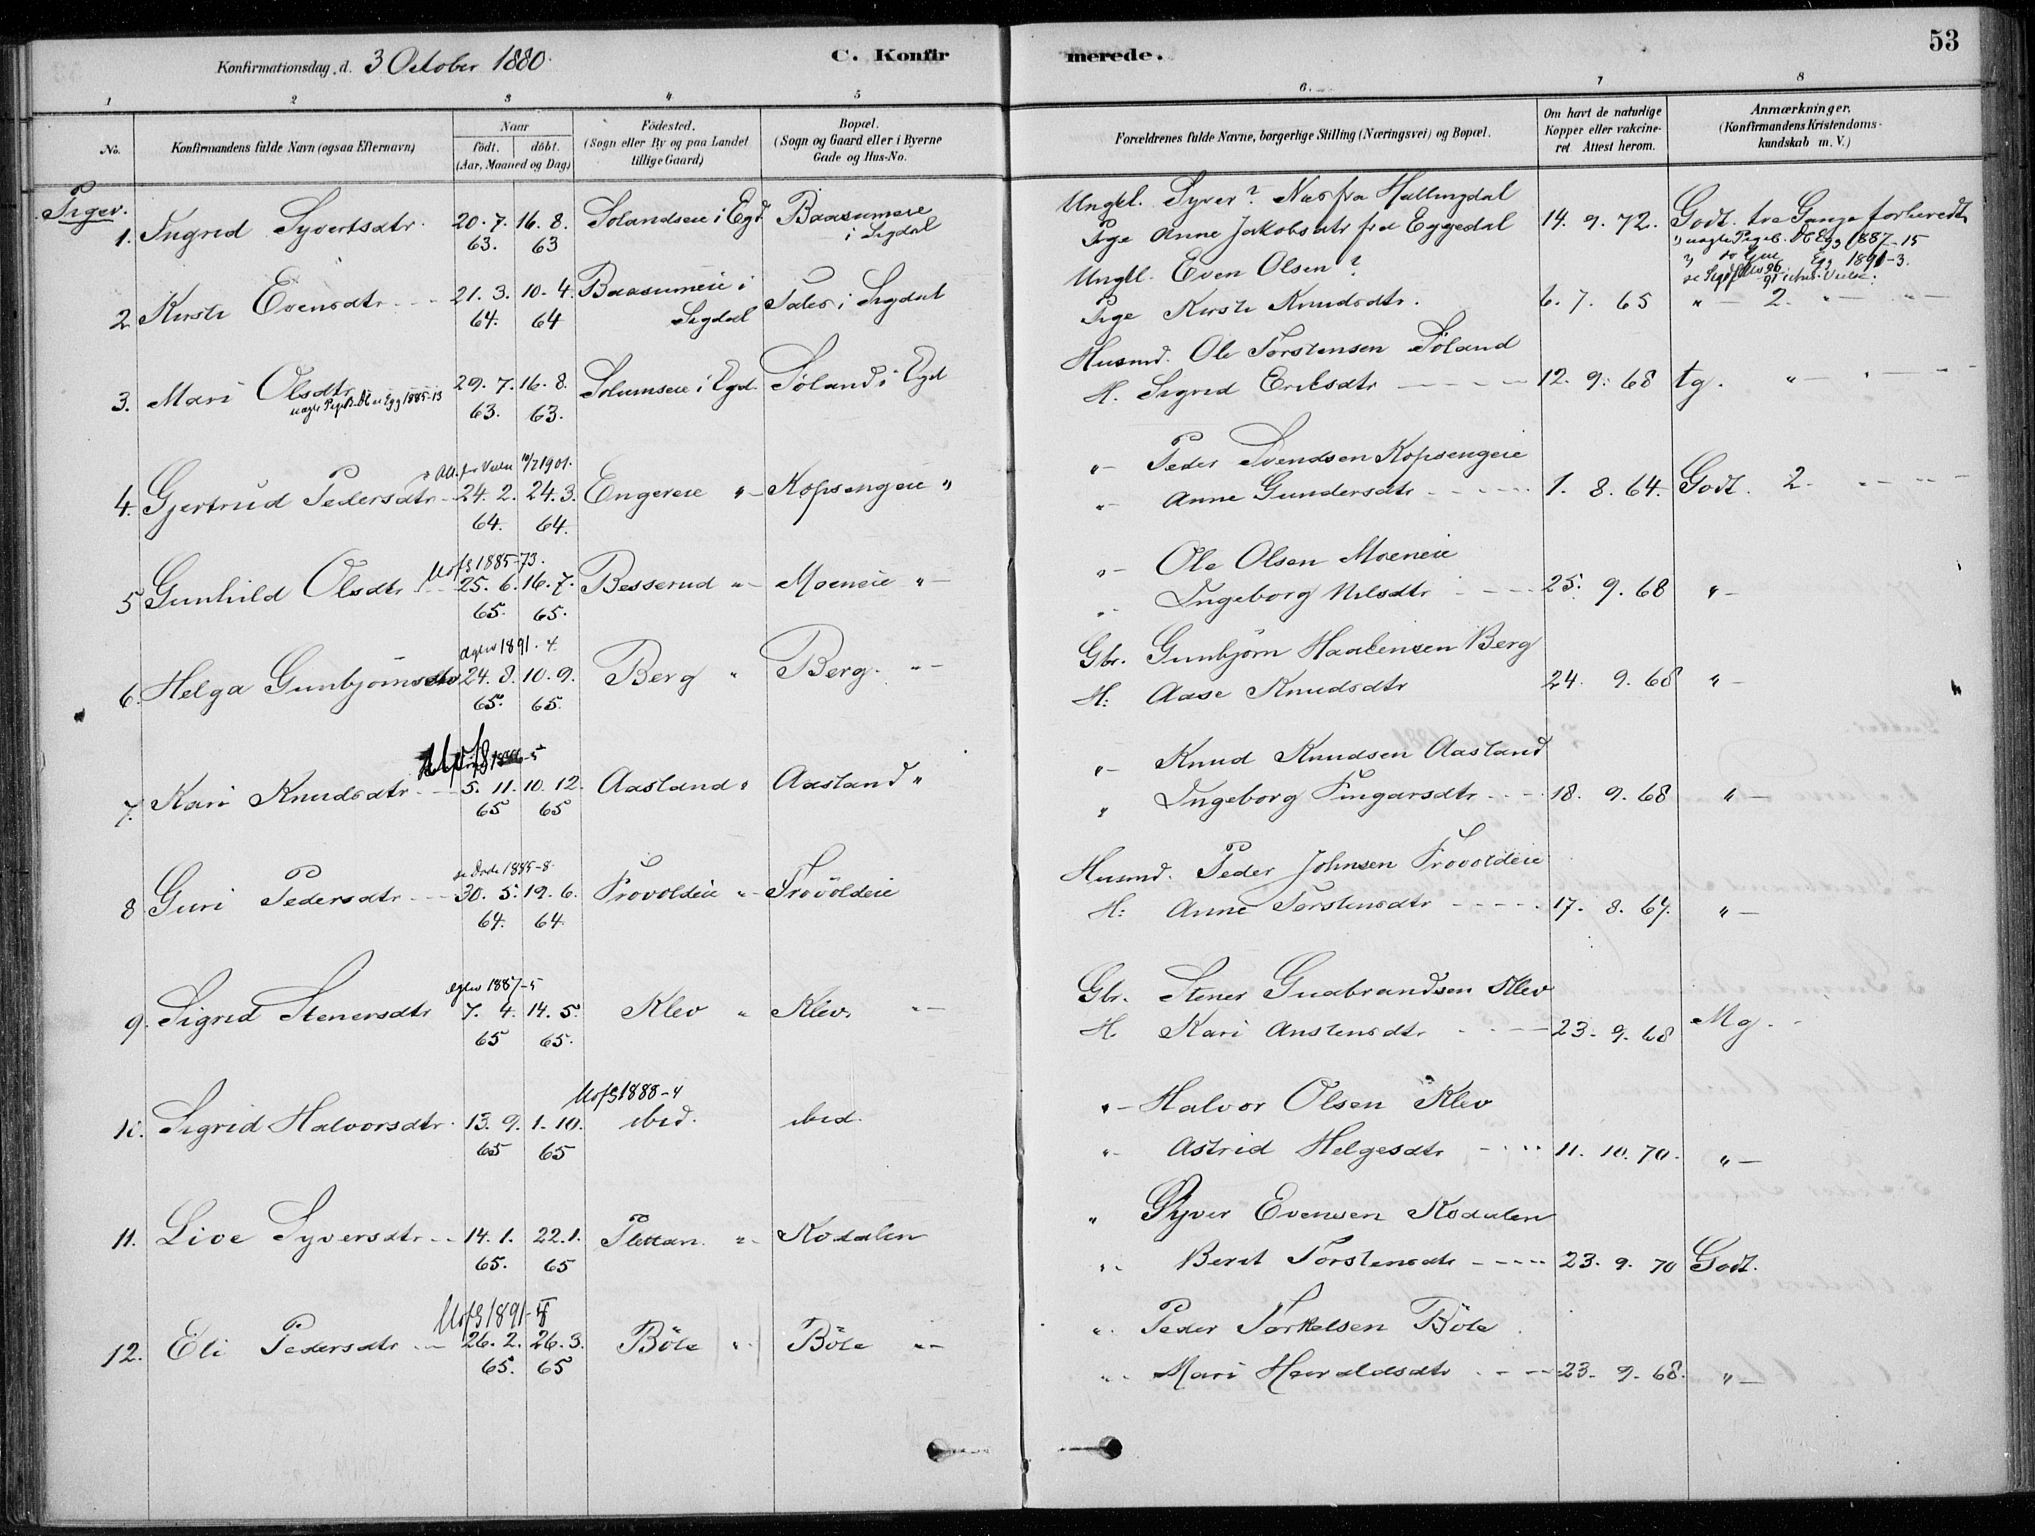 Konfirmationsdag, d. 3 October 1880. C. Konfir
merede. 53
1 2 3 4 5
6. 7 8
No. Konfirmandens fulde Navn (ogsaa Efternavn) Naar født. døbt. (Aar, Maaned og Dag) Fødested. (Sogn eller By og paa Landet tillige Gaard) Bopæl. (Sogn og Gaard eller i Byerne Gade og Hus-No.
Forældrenes fulde Navne, borgerlige Stilling (Næringsvei) og Bopæl. Om havt de naturlige Kopper eller vakcineret Attest herom. Anmærkninger. (Konfirmandens Kristendomskundskab m. V.)
Piger.
1. Ingrid Syvertsdtr. 20. 7. 63. 16. 8. 63 Solandseie i Egd. Baasumeie i Sigdal
Ungkl. Syver? Næs fra Hallingdal
Pige Anne Jakobsdtr fra Eggedal 14. 9. 72. Godt. tre Gange forberedt
2 Kirsti Evensdtr 21. 3. 64. 10. 4. 64 Baasumeie i Sigdal Tales i Sigdal
Ungkl. Even Olsen?
Pige Kirsti Knudsdtr. 6. 7. 65 " 2. " "
3. Mari Olsdtr 29. 7. 63. 16. 8. 63. Solumseie i Egd. Søland i Egd
Husmd. Ole Torstensen Søland
H. Sigrid Eriksdtr 12. 9. 68 tg. " "
4. Gjertrud Pedersdtr 24. 2. 64. 24. 3. 64. Engereie " Kopsengeie "
" Peder Svendsen Kopsengeie
" Anne Gundersdtr 1. 8. 64. Godt. 2. " "
Uofs 1885-73.
5 Gunhild Olsdtr 25. 6. 65. 16. 7. 65. Besserud " Moeneie "
" Ole Olsen Moeneie
" Ingeborg Nilsdtr 25. 9. 68 "
1891. 4.
6. Helga Gunbjørnsdtr 24. 8. 65. 10. 9. 65. Berg " Berg. "
Gbr. Gunbjørn Haakensen Berg
H: Aase Knudsdtr 24. 9. 68 "
7. Kari Knudsdtr 5. 11. 65 10. 12. 65 Aasland " Aasland "
" Knud Knudsen Aasland
" Ingeborg Fingarsdtr 18. 9. 68 "
se Døde 1885-8.
8 Guri Pedersdtr 30. 5. 64. 19. 6. 64. Frovoldeie " Frovoldeie
Husmd. Peder Johnsen Frovoldeie
H: Anne Torstensdtr 17. 8. 67. "
1887-5
9. Sigrid Stenersdtr 7. 4. 65 14. 5. 65. Klev " Klev. "
Gbr. Stener Gudbrandsen Klev
H. Kari Anstensdtr 23. 9. 68 Mg.
Uofs 1888-4
10. Sigrid Halvorsdtr. 13. 9. 65 1. 10. 65 ibid. ibid.
" Halvor Olsen Klev
" Astrid Helgesdtr 11. 10. 70. "
11. Live Syversdtr 14. 1. 65. 22. 1. 65 Plettan. " Kodalen
" Syver Evensen Kodalen
" Berit Torstensdtr 23. 9. 70 Godt.
Uofs 1891-
12. Eli Pedersdtr 26. 2. 65. 26. 3. 65 Bøle " Bøle "
" Peder Torkelsen Bøle
" Mari Haraldsdtr 23. 9. 68. "